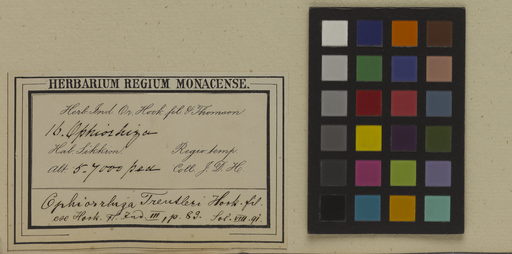 HERBARIUM REGIUM MONACENSE.
Herb. Ind. Or. Hook. fil. & Thomson
16. Ophiorhiza
Hab. Sikkim Regio temp.
Alt. 5-7000 ped. Coll. J. D. H.
Ophiorrhiza Treutleri Hook. fil.
Hook. Fl. Ind. III, p. 82.